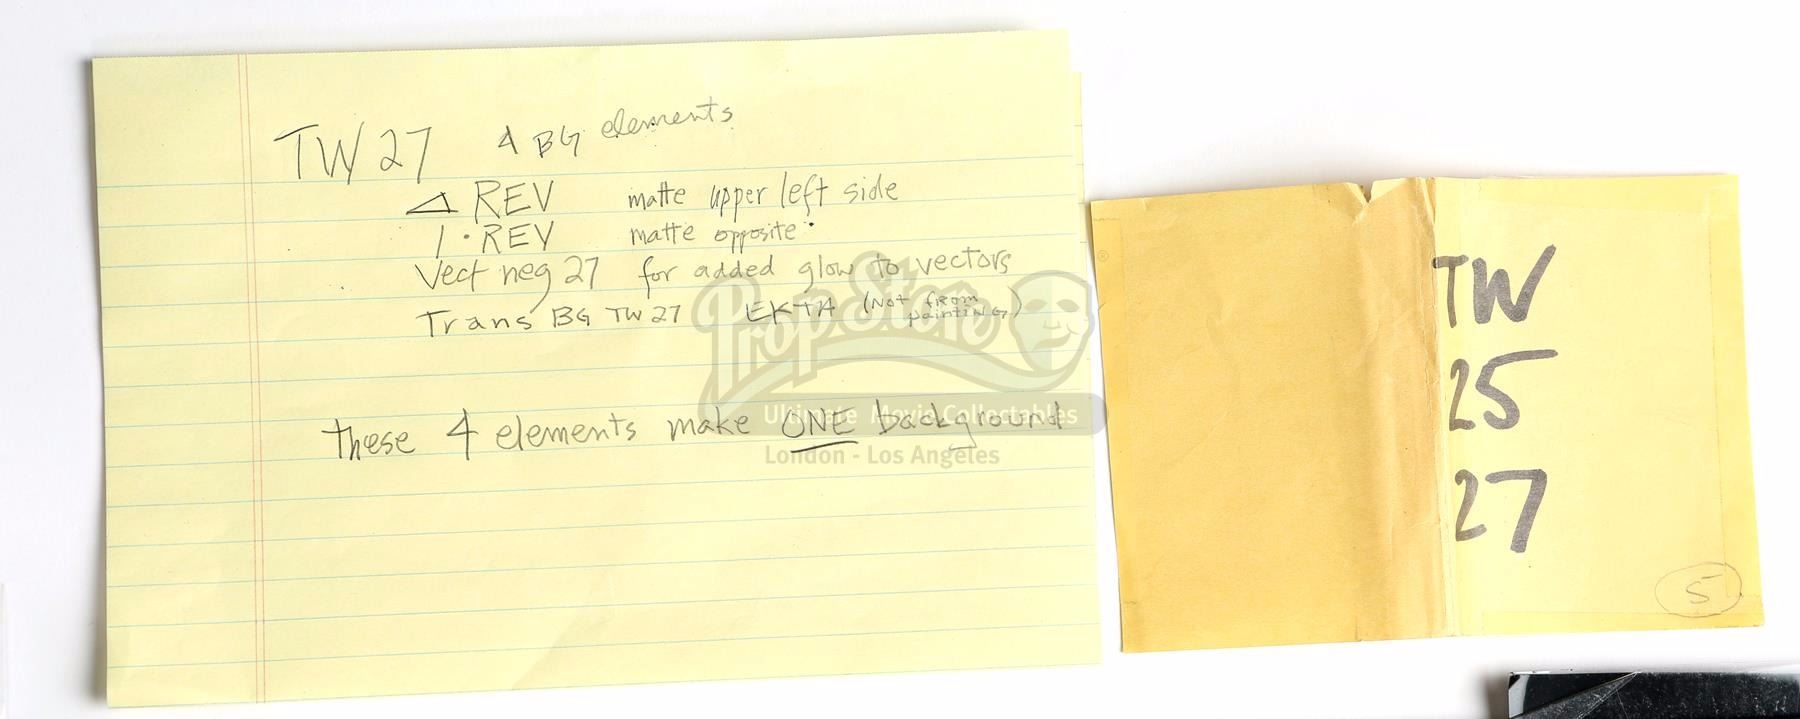 TW 27 4 BG elements
REV matte upper left side
1 · REV matte opposite
Vect neg 27 for added glow to vectors
Trans BG TW 27 EKTA (Not from painting)
these 4 elements make ONE background
Prop Store
Ultimate Movie Collectables
London - Los Angeles
TW
25
27
5